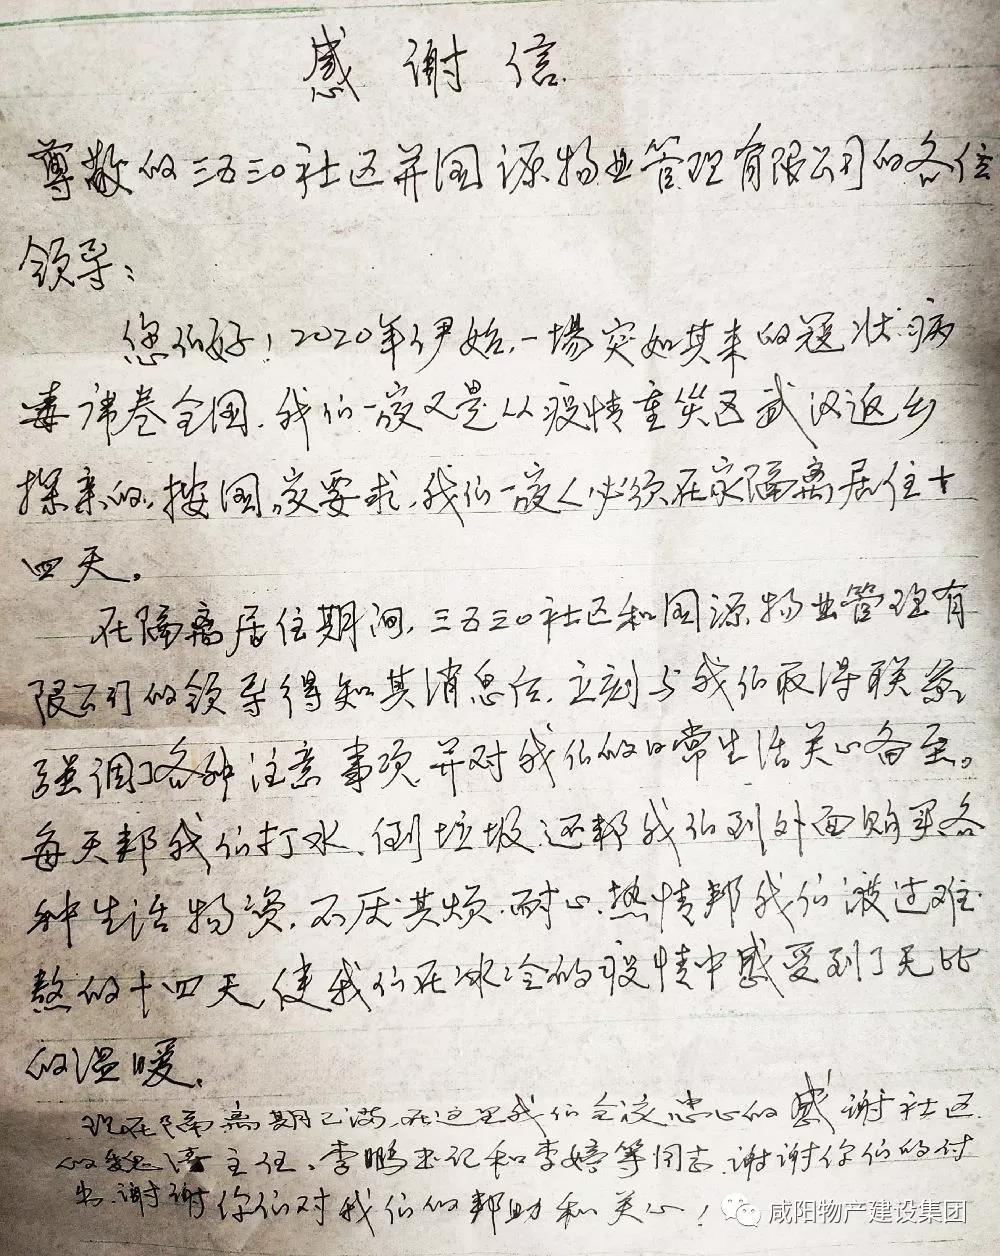 感谢信
尊敬的三五三0社区并国源物业管理有限公司的各位
领导：
您们好！2020年伊始，一场突如其来的冠状病
毒席卷全国，我们一家又是从疫情重灾区武汉返乡
探亲的，按国家要求，我们一家人必须在家隔离居住十
四天。
在隔离居住期间，三五三0社区和国源物业管理有
限公司的领导得知其消息后，立刻与我们取得联系
强调了各种注意事项，并对我们的日常生活关心备至。
每天帮我们打水、倒垃圾，还帮我们到外面购买各
种生活物资，不厌其烦，耐心、热情帮我们渡过难
熬的十四天，使我们在冰冷的疫情中感受到了无比
的温暖。
现在隔离期已满，在这里我们全家忠心的感谢社区
的魏主任、李鹏书记和李婷等同志，谢谢你们的付
出，谢谢你们对我们的帮助和关心！
咸阳物产建设集团